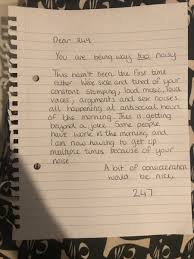 Dear 249
You are being way too noisy
This hasn't been the first time
either. Wex side and tired of your
constant stomping, loud music, loud
voices, arguments and sex noises
all happening at antisocial hours
of the morning. This is getting
beyond a joke. Some people
have work in the morning and
I am now having to get up
multiple times because of your
noise
A bit of consideration
would be nice,
247